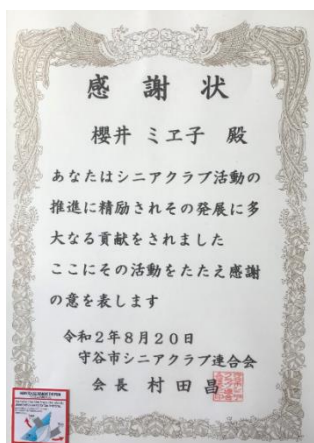 感謝状
櫻井 ミヱ子 殿
あなたはシニアクラブ活動の
推進に精励されその発展に多
大なる貢献をされました
ここにその活動をたたえ感謝
の意を表します
令和2年8月20日
守谷市シニアクラブ連合会
会長 村田昌